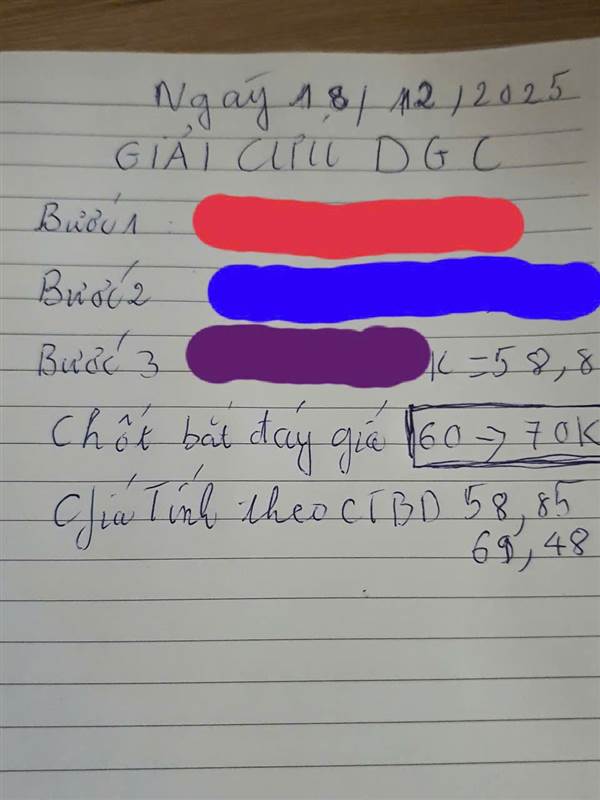 Ngày 18/12/2025
GIẢI CỨU DGC
Bước 1
Bước 2
Bước 3 K = 58,8
Chốt bắt đáy giá 60 → 70K
Giá Tính theo CTBD 58,85
69,48